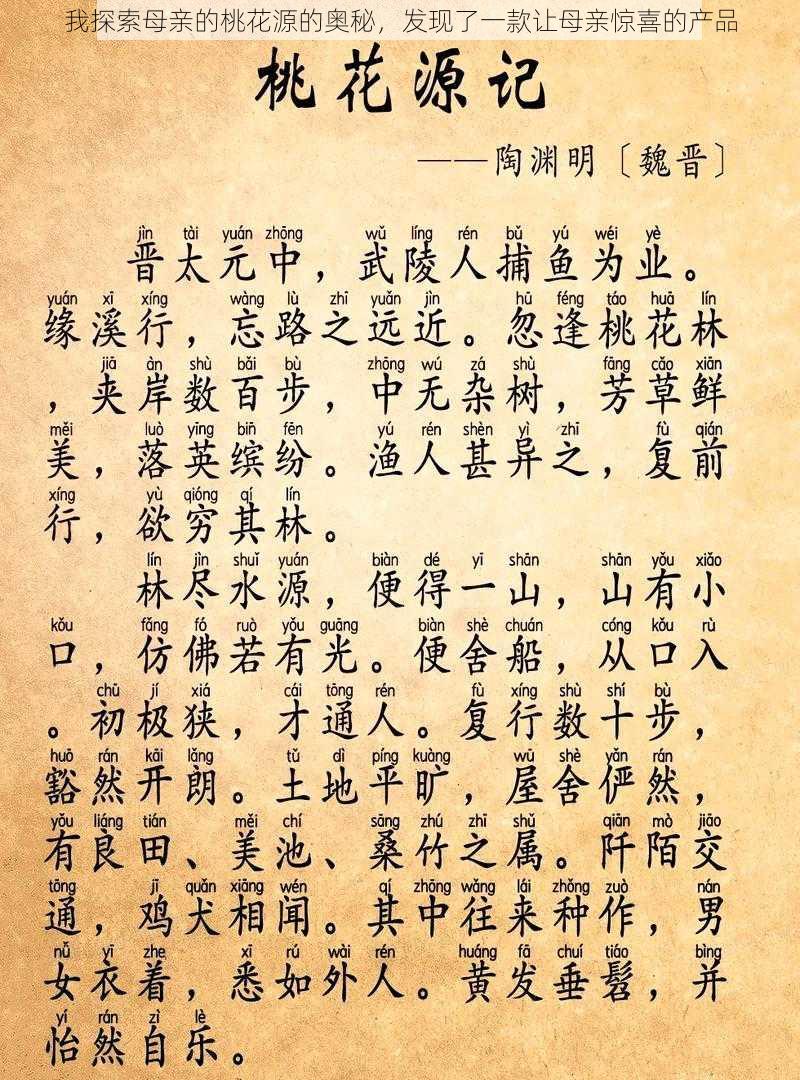 我探索母亲的桃花源的奥秘，发现了一款让母亲惊喜的产品
桃花源记
——陶渊明〔魏晋〕
jìn tài yuán zhōng wǔ líng rén bǔ yú wéi yè
晋太元中，武陵人捕鱼为业。
yuán xī xíng wàng lù zhī yuǎn jìn hū féng táo huā lín
缘溪行，忘路之远近。忽逢桃花林
jiā àn shù bǎi bù zhōng wú zá shù fāng cǎo xiān
，夹岸数百步，中无杂树，芳草鲜
měi luò yīng bīn fēn yú rén shèn yì zhī fù qián
美，落英缤纷。渔人甚异之，复前
xíng yù qióng qí lín
行，欲穷其林。
lín jìn shuǐ yuán biàn dé yī shān shān yǒu xiǎo
林尽水源，便得一山，山有小
kǒu fǎng fó ruò yǒu guāng biàn shè chuán cóng kǒu rù
口，仿佛若有光。便舍船，从口入
chū jí xiá cái tōng rén fù xíng shù shí bù
。初极狭，才通人。复行数十步，
huò rán kāi lǎng tǔ dì píng kuàng wū shè yǎn rán
豁然开朗。土地平旷，屋舍俨然，
yǒu liáng tián měi chí sāng zhú zhī shǔ qiān mò jiāo
有良田、美池、桑竹之属。阡陌交
tōng jī quǎn xiāng wén qí zhōng wǎng lái zhǒng zuò nán
通，鸡犬相闻。其中往来种作，男
nǚ yī zhe xī rú wài rén huáng fā chuí tiáo bìng
女衣着，悉如外人。黄发垂髫，并
yí rán zì lè
怡然自乐。